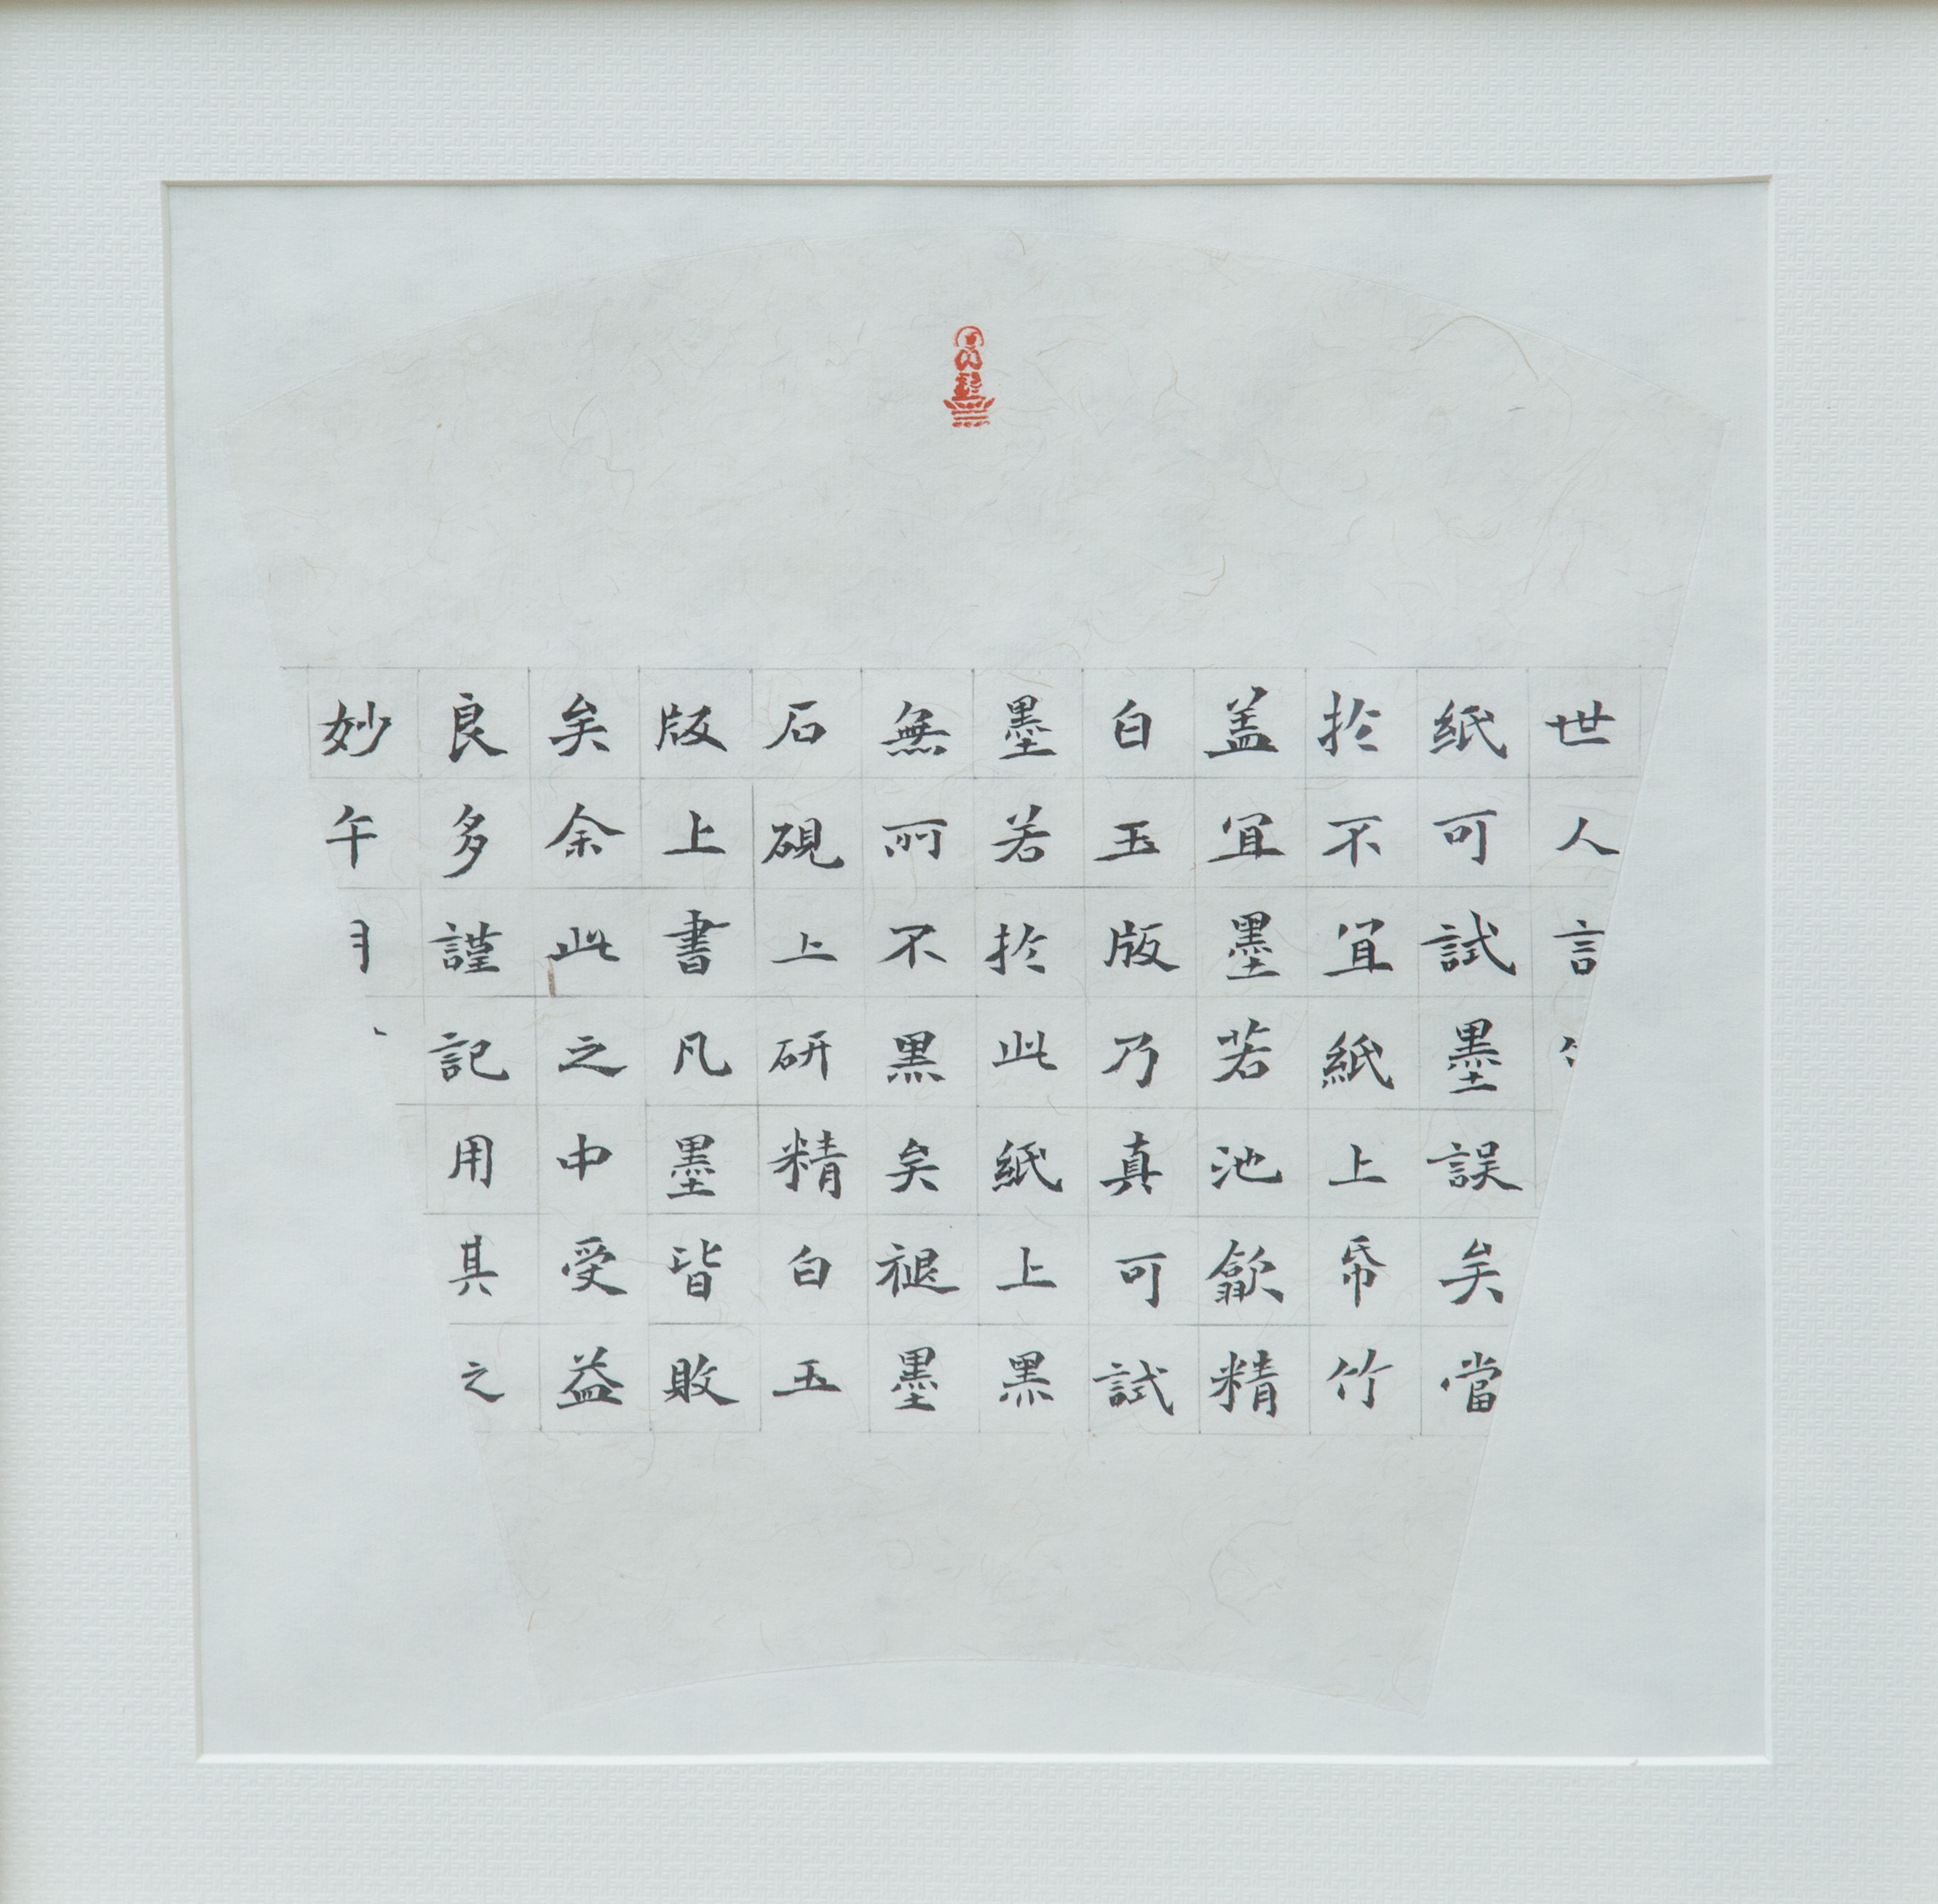 世人言
紙可試墨誤矣當
扵不宜紙上帋竹
盖宜墨若池歙精
白玉版乃真可試
墨若扵此紙上黒
無所不黒矣褪墨
石硯上研精白玉
版上書凡墨皆敗
矣余此之中受益
良多謹記用其之
妙午